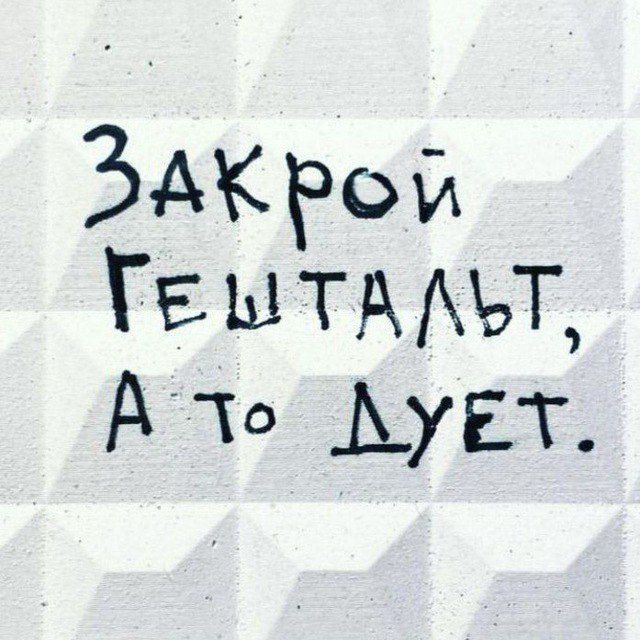 Закрой
Гештальт,
А то дует.